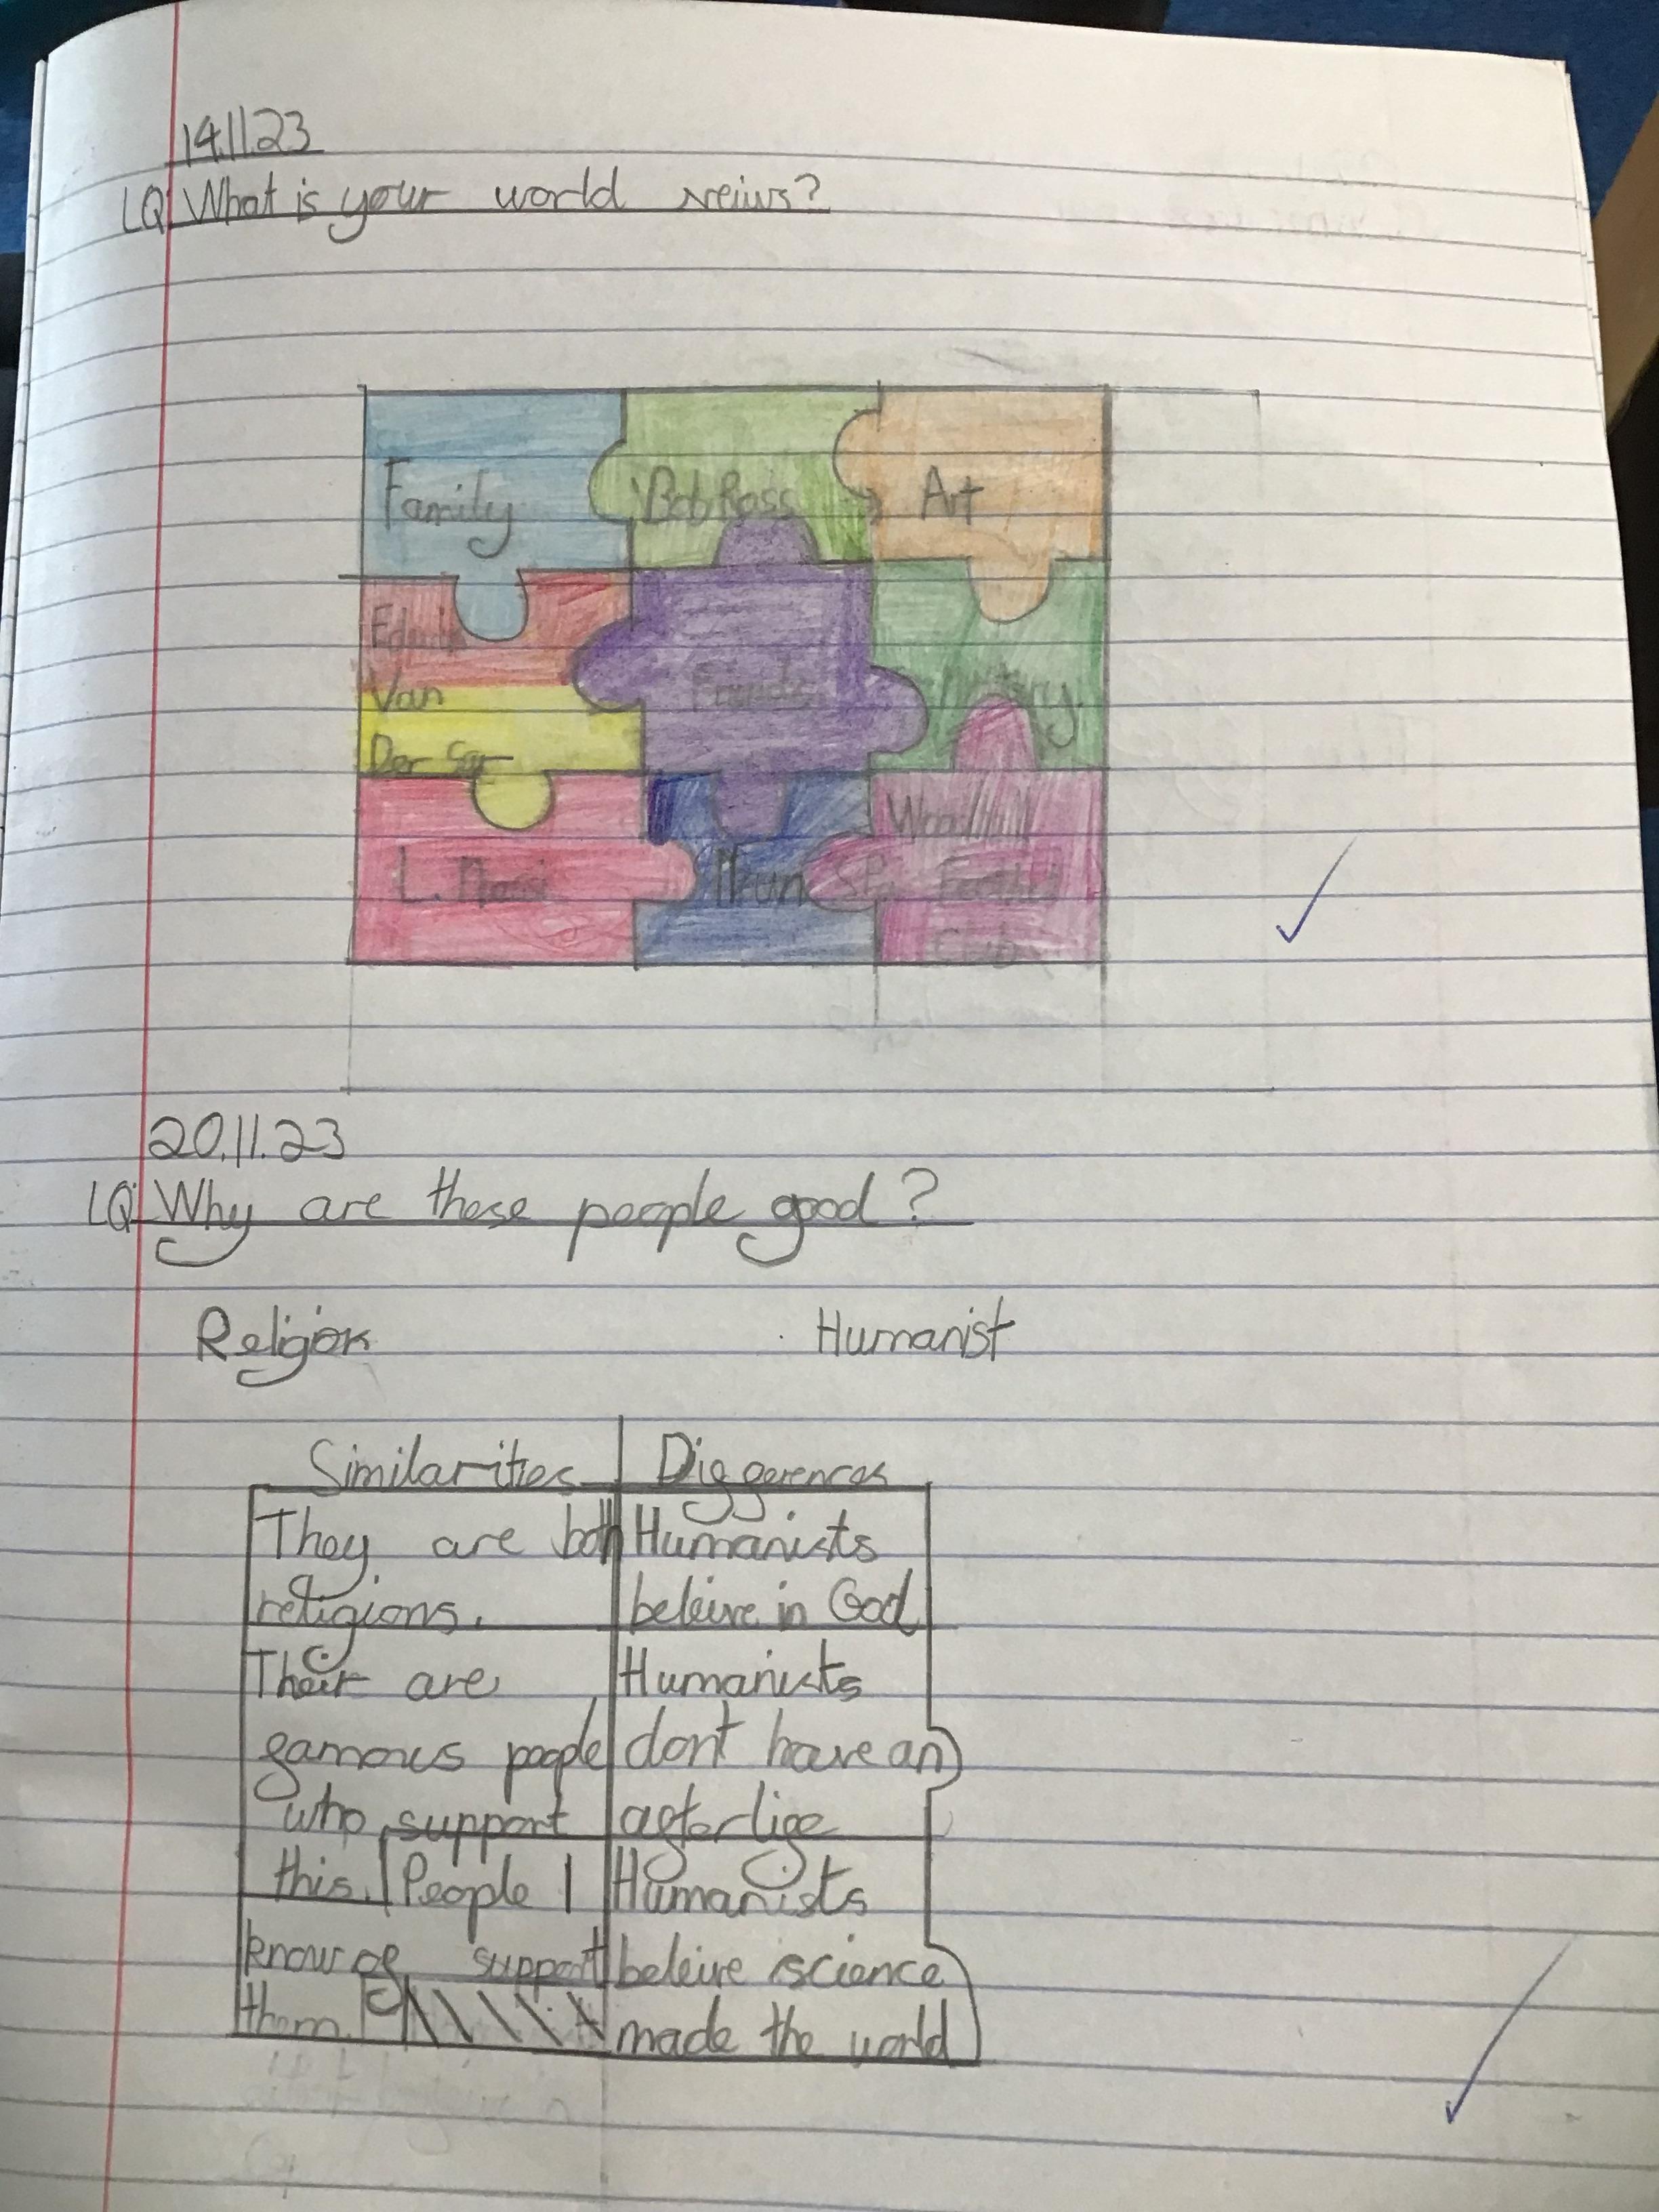 14.11.23
LQ What is your world veiws?
Family
Bob Ross
Art
Edwin
Van
Der Sar
Friends
History
L. Messi
Mum
Football
Club
20.11.23
LQ Why are these people good?
Religion Humanist
Similarities Differences
They are both
religions.
Humanists
beleive in God
Their are
famous people
who support
this.
Humanists
dont have an
afterlife
People I
know of support
them.
Humanists
beleive science
made the world